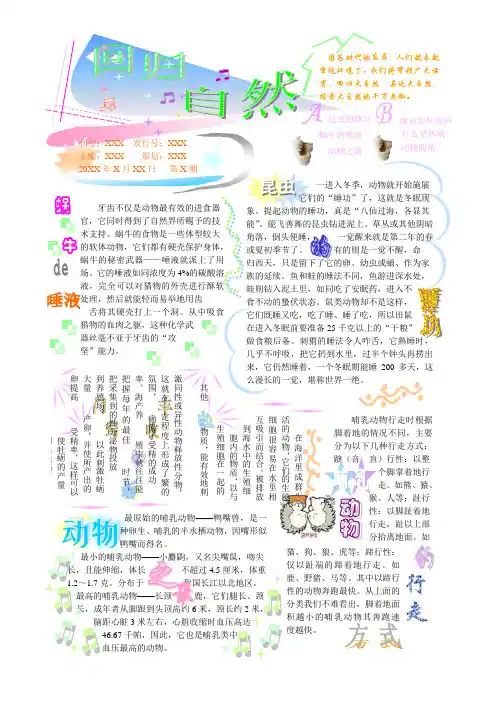 回归自然
因为时代的发展，人们越来越
重视环境了。我们将带领广大读
者，回归大自然，亲近大自然，
探索大自然的千万奥秘。
A
昆虫的睡功
蜗牛的唾液
动物之最
B
什么是休眠
动物的角
XXX 发行号：XXX
主编：XXX 策划：XXX
20XX年X月XX日 第X期
蜗牛de唾液
牙齿不仅是动物最有效的进食器
官，它同时得到了自然界所赐予的技
术支持。蜗牛的食物是一些体型较大
的软体动物，它们都有硬壳保护身体，
蜗牛的秘密武器——唾液就派上了用
场。它的唾液如同浓度为4%的硫酸溶
液，完全可以对猎物的外壳进行酥软
处理，然后就能轻而易举地用齿
舌将其硬壳打上一个洞。从中吸食
猎物的血肉之躯。这种化学武
器丝毫不亚于牙齿的“攻
坚”能力。
昆虫的睡功
一进入冬季，动物就开始施展
它们的“睡功”了，这就是冬眠现
象。提起动物的睡功，真是“八仙过海，各显其
能”，能飞善舞的昆虫钻进泥上、草丛或其他阴暗
角落，倒头便睡， 一觉醒来就是第二年的春
或夏初季节了。 有的则是一觉不醒，命
归西天，只是留下了它的卵、幼虫或蛹，作为家
族的延续。鱼和蛙的睡法不同，鱼游进深水处，
蛙则钻入泥土里，如同吃了安眠药，进入不
食不动的蛰伏状态。鼠类动物却不是这样，
它们既睡又吃，吃了睡、睡了吃，所以田鼠
在进入冬眠前要准备25千克以上的“干粮”
做食粮后备。刺猬的睡法令人咋舌，它熟睡时，
几乎不呼吸，把它扔到水里，过半个钟头再捞出
来，它仍然睡着，一个冬眠期能睡 200 多天，这
么漫长的一觉，堪称世界一绝。
在海洋里成群生
活的动物，它们的生殖
细胞很容易在水里相
互吸引而结合，被排放
到海水中的生殖细
胞内的物质，以与
生殖细胞在一起的
其他 物质，能有效地刺
激同性或异性动物释放性分物，
这就在一定程度上形成了繁的
氛围， 确保了受精的成功
率，海产养 殖中就往往能
把握每年的最佳 时节，
把采集到的性分泌物投放
到养殖场 以此刺激牡蛎
大量 产卵，并使所产出的
卵提高 受精率，这样可以
使牡蛎的产量
动物
最原始的哺乳动物——鸭嘴兽，是一
种卵生、哺乳的半水栖动物，因嘴形似
鸭嘴而得名。
最小的哺乳动物——小麝鼩，又名尖嘴鼠，吻尖
长，且能伸缩，体长 不超过4.5厘米，体重
1.2～1.7克。分布于 我国长江以北地区。
最高的哺乳动物——长颈 鹿，它们腿长、颈
长，成年者从脚跟到头顶高约6米，颈长约2米，
脑距心脏3米左右，心脏收缩时血压高达
46.67千帕，因此，它也是哺乳类中
血压最高的动物。
动物的行走方式
哺乳动物行走时根据
脚着地的情况不同，主要
分为以下几种行走方式：
蹠（音 直）行性：以整
个脚掌着地行
走。如熊、猿
猴、人等；趾行
性：以脚趾着地
行走，趾以上部
分抬离地面。如
猫、狗、狼、虎等；蹄行性：
仅以趾端的蹄着地行走。如
鹿、野猪、马等。其中以蹄行
性的动物奔跑最快。从上面的
分类我们不难看出，脚着地面
积越小的哺乳动物其奔跑速
度越快。